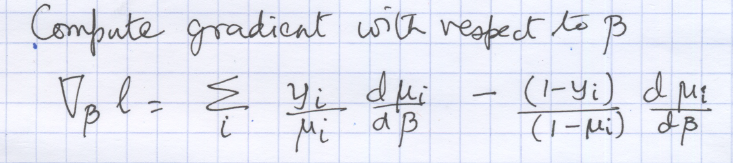 Compute gradient with respect to β
∇_β l = Σ_i y_i/μ_i dμ_i/dβ - (1-y_i)/(1-μ_i) dμ_i/dβ